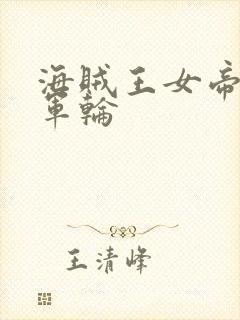 海賊王女帝
軍輪
王清峰